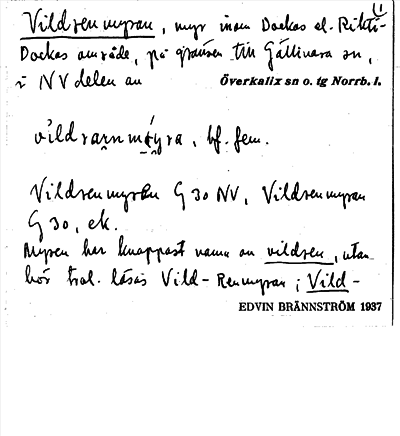 Vildrenmyran, myr inom Dockas el. Rikti- (1
Dockas område, på gränsen till Gällivare sn,
i NV delen av Överkalix sn o. tg Norrb. l.
vildrarnmýra, bf. fem.
Vildrenmyran G 30 NV, Vildrenmyran
G 30, ek.
Myren har knappast namn av vildren, utan
bör trol. läsas Vild-Renmyran; Vild-
EDVIN BRÄNNSTRÖM 1937